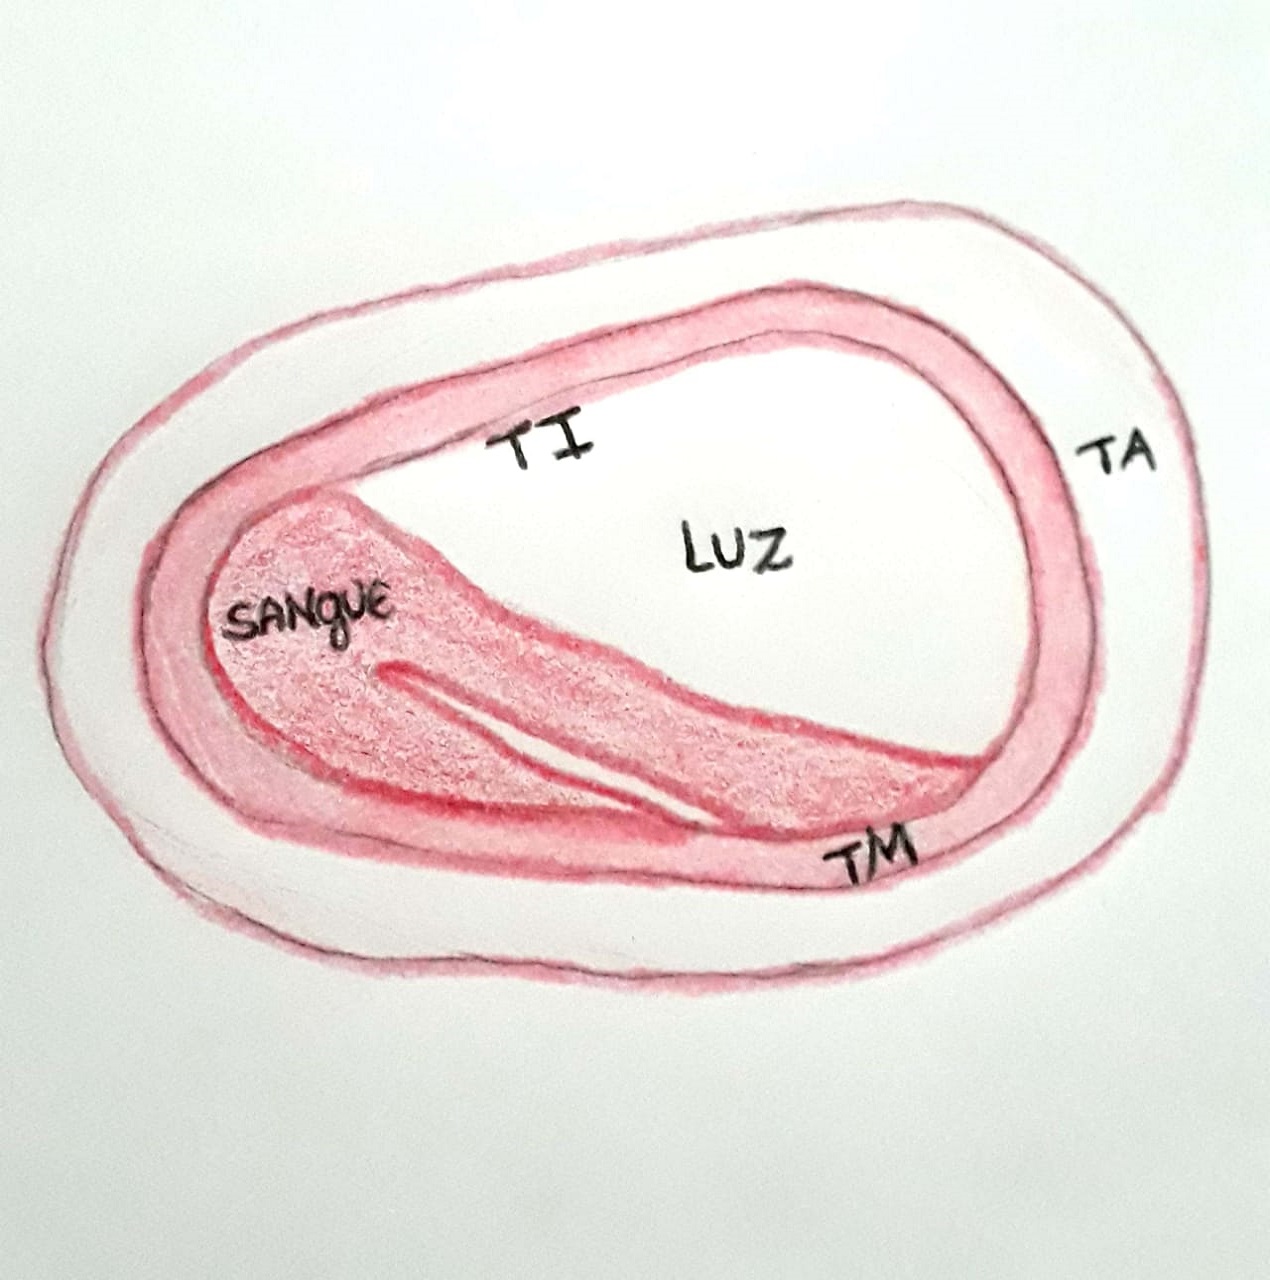 TI
TA
LUZ
SANgUE
TM